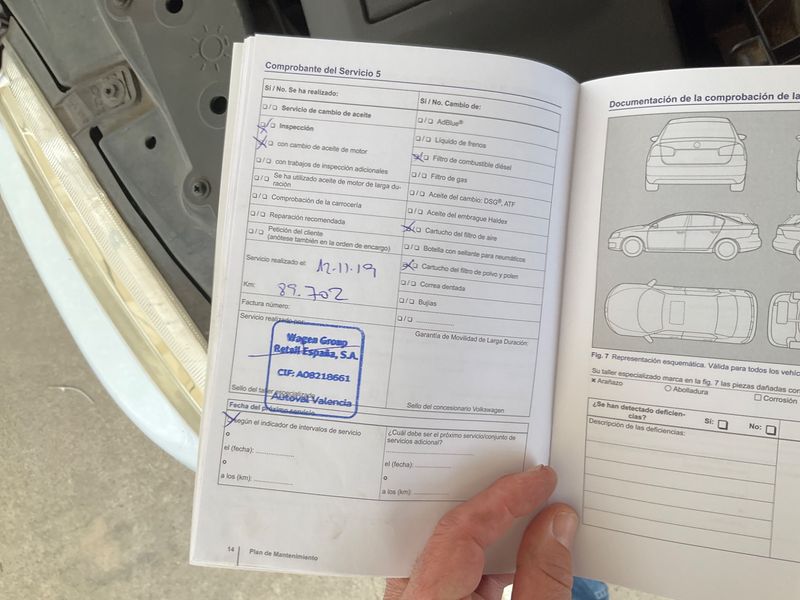 Comprobante del Servicio 5
Sí / No. Se ha realizado:
❏ / ❏ Servicio de cambio de aceite
❏ / ❏ Inspección
❏ / ❏ con cambio de aceite de motor
❏ / ❏ con trabajos de inspección adicionales
❏ / ❏ Se ha utilizado aceite de motor de larga du-
ración
❏ / ❏ Comprobación de la carrocería
❏ / ❏ Reparación recomendada
❏ / ❏ Petición del cliente
(anótese también en la orden de encargo)
Servicio realizado el: 12.11.19
Km: 89.702
Factura número:
Servicio realizado por:
Wagen Group
Retail España, S.A.
CIF: A08218661
Autoval Valencia
Sello del taller especializado
Sí / No. Cambio de:
❏ / ❏ AdBlue®
❏ / ❏ Líquido de frenos
❏ / ❏ Filtro de combustible diésel
❏ / ❏ Filtro de gas
❏ / ❏ Aceite del cambio: DSG®, ATF
❏ / ❏ Aceite del embrague Haldex
❏ / ❏ Cartucho del filtro de aire
❏ / ❏ Botella con sellante para neumáticos
❏ / ❏ Cartucho del filtro de polvo y polen
❏ / ❏ Correa dentada
❏ / ❏ Bujías
❏ / ❏ ..................
Garantía de Movilidad de Larga Duración:
Sello del concesionario Volkswagen
Fecha del próximo servicio
según el indicador de intervalos de servicio
o
el (fecha): ..................
o
a los (km): ..................
¿Cuál debe ser el próximo servicio/conjunto de
servicios adicional?
..................
el (fecha): ..................
o
a los (km): ..................
14 Plan de Mantenimiento
Documentación de la comprobación de la
Fig. 7 Representación esquemática. Válida para todos los
Su taller especializado marca en la fig. 7 las piezas dañadas
× Arañazo
○ Abolladura
□ Corrosión
¿Se han detectado deficien-
cias?
Sí: ❏
No: ❏
Descripción de las deficiencias: